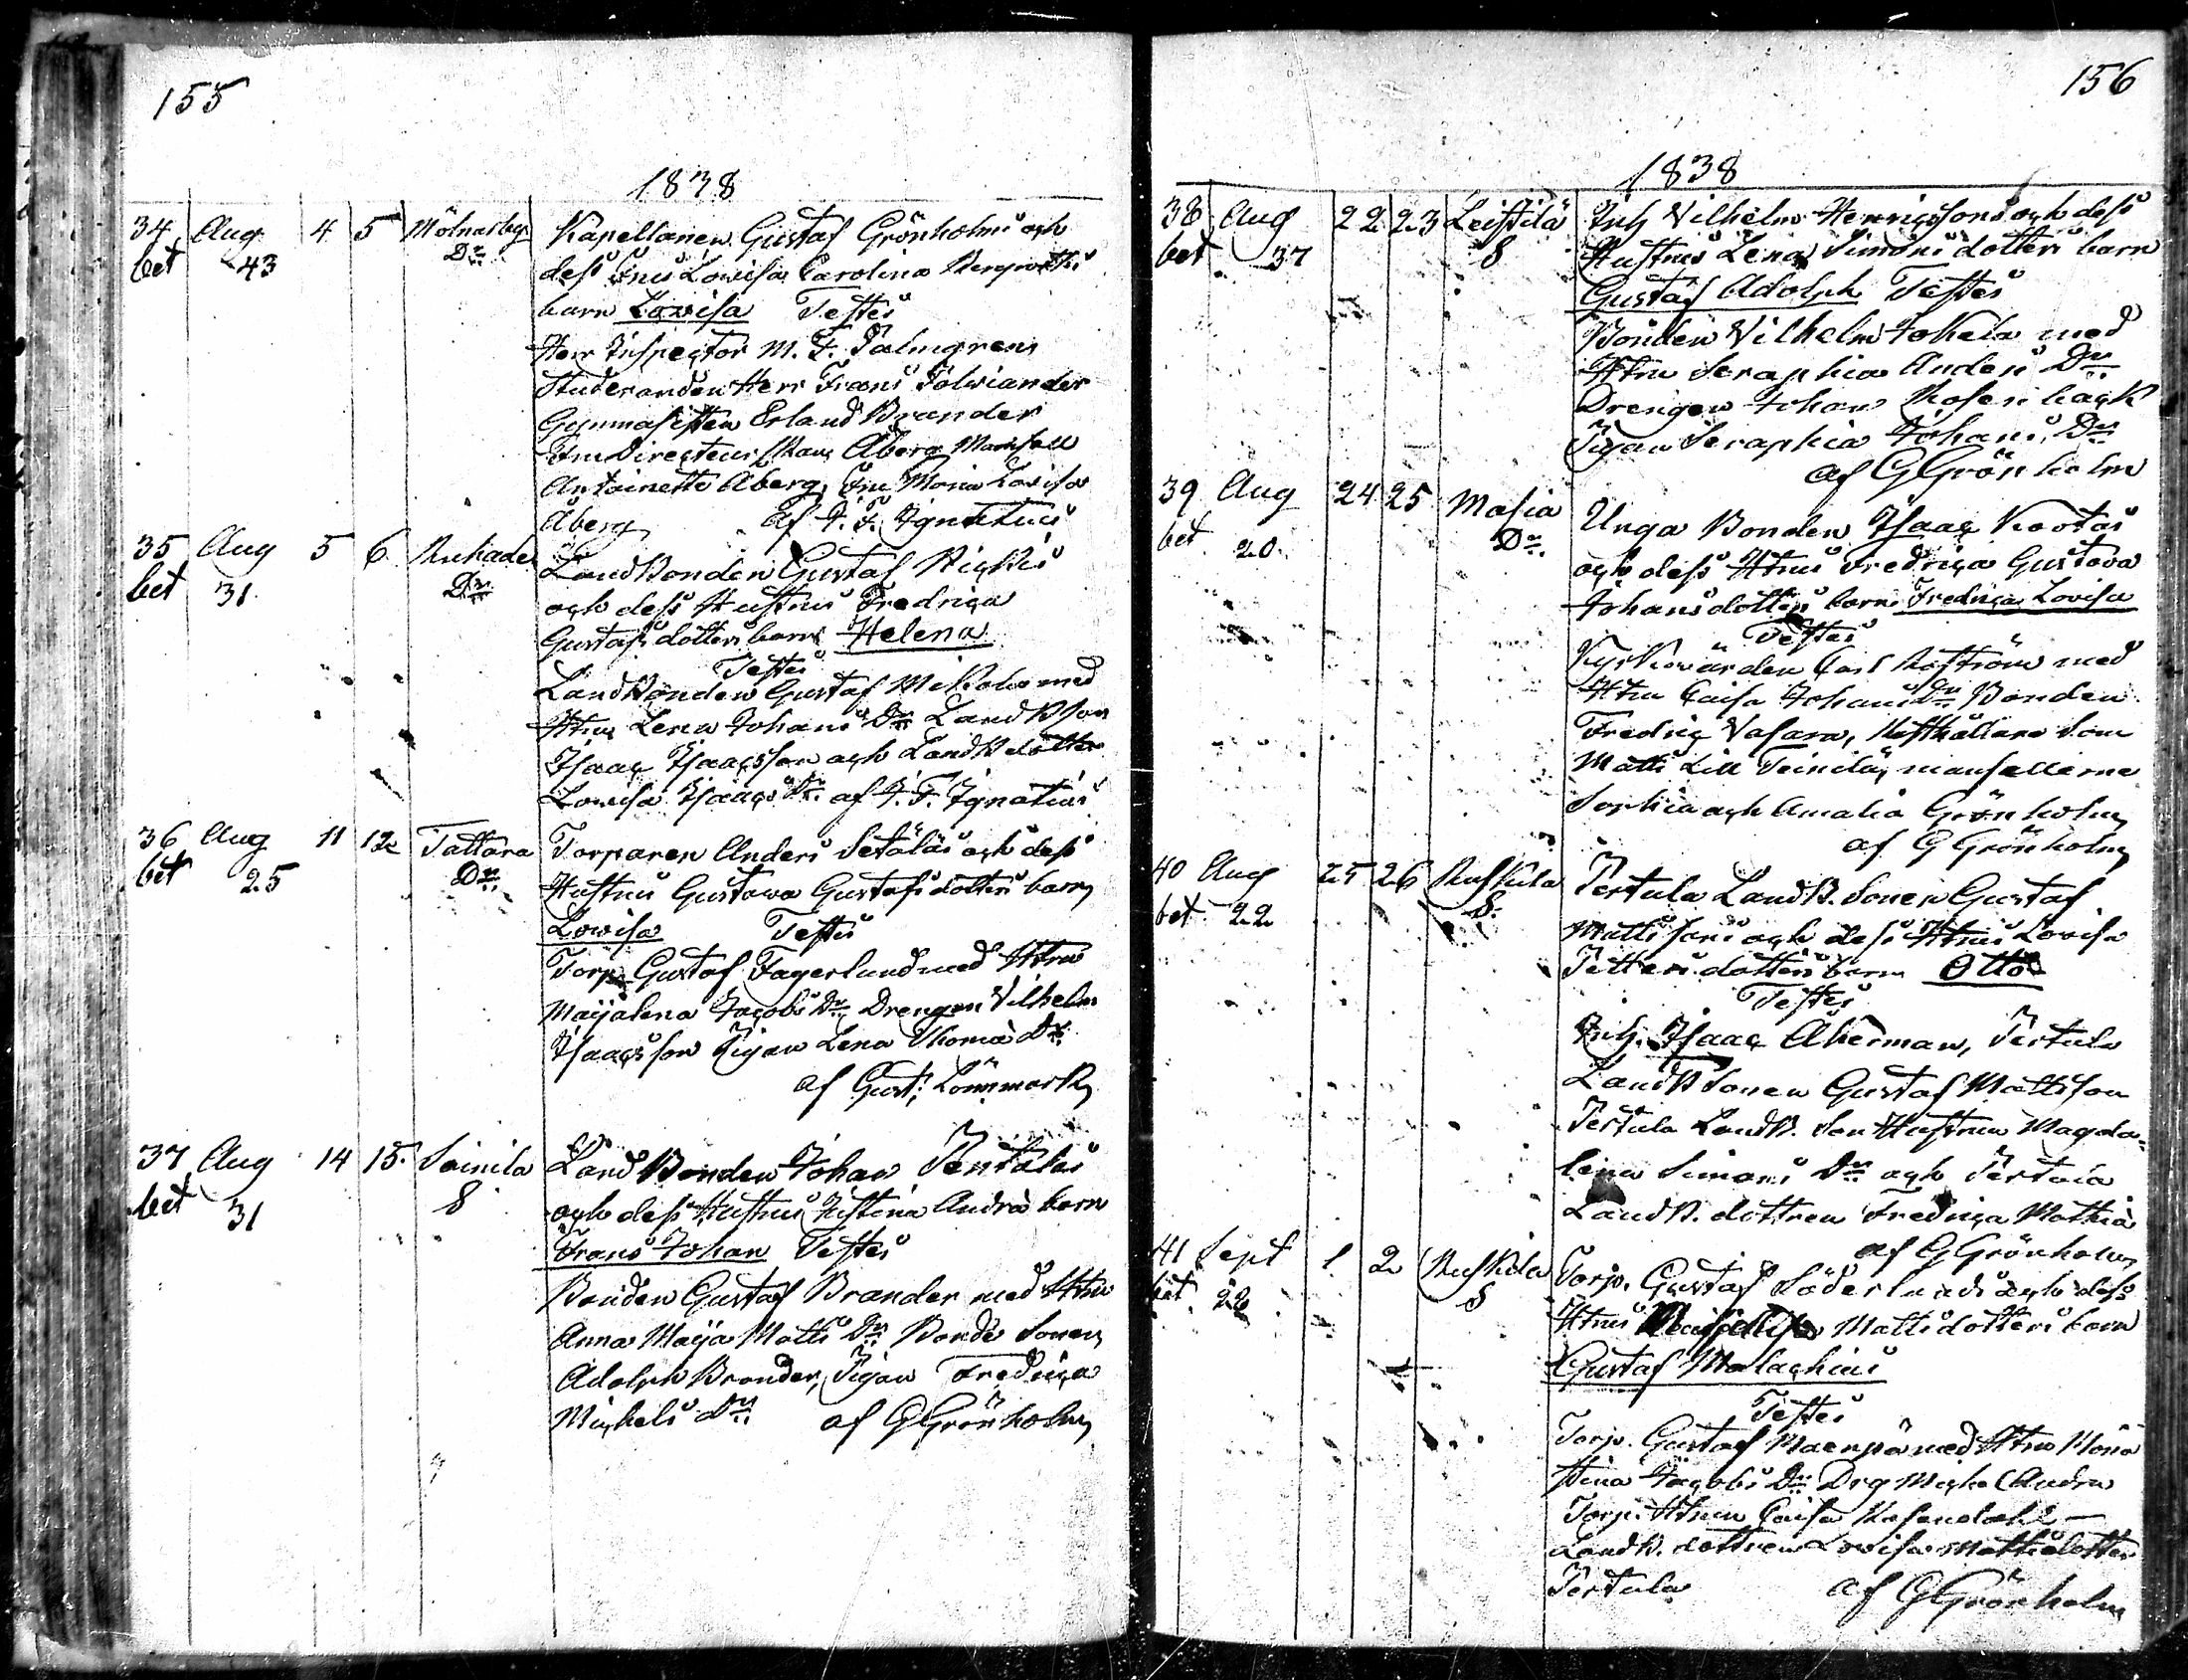 155
1838
34 Aug 4 5 Mölnarby Kapellanen Gustaf Grönholms och
bet 43 Dr. dess Frus Lovisa Carolina
barn Lovisa Testes
Herr Inspector M. F. Palmgren
Studeranden Herr Frans Tolviander
Gymnasisten Erland Brander
Fru Directeurskan Åberg Mamsell
Antoinette Åberg, Fru Maria Lovisa
Åberg af J. F. Ignatius
35 Aug 5 6 LandBonden Gustaf
bet 31 Dr. och dess Hustrus Fredrica
Gustafsdotters barn Helena
Testes
LandBonden Gustaf Mikola med
Hru Lena Johans Dr LandB son
Isaac Isaacsson och LandB dotter
Lovisa Isaacs Dr. af J. F. Ignatius
36 Aug 11 12 Tattara Torparen Anders Setäläs och dess
bet 25 Dr. Hustrus Gustava Gustafsdotters barn
Lovisa Testes
Torp. Gustaf Fagerlund med Htru
Majalena Jacobs Dr, Drengen Vilhelm
Isaacsson Pigan Lena Thomæ Dr
af Gust: Lönnmark
37 Aug 14 15. Soinila Land Bonden Johan
bet 31 S och dess Hustrus Justina Andræ barn
Frans Johan Testes
Bonden Gustaf Brander med Htru
Anna Maja Matts Dr Bonde Sonen
Adolph Brander, Pigan Fredrica
Michels Dr. af G Grönholm
156
1838
38 Aug 22 23 Leistilä Inh Vilhelm Henricssons och dess
bet 37 S Hustrus Lena Simonsdotters barn
Gustaf Adolph Testes
Bonden Vilhelm Tokela med
Htru Seraphia Anders Dr
Drengen Johan Rosenback
Pigan Seraphia Johans Dr
af G Grönholm
39 Aug 24 25 Masia Unga Bonden Isaac
bet 20 Dr. och dess Htrus Fredrica Gustava
Johansdotters barn Fredrica Lovisa
Testes
Kyrkovärden Carl med
Htru Caisa Johans Dr Bonden
Fredric Vasara, Rusthållare Son
Matts Lill Teinilä, mamsellerne
Sophia och Amalia Grönholm
af G Grönholm
40 Aug 25 26 Ruskila Pertula LandB. Sonen Gustaf
bet 22 S. Mattssons och dess Htrus Lovisa
Pettersdotters barn Otto
Testes
Inh. Isaac Akerman, Pertula
LandB Sonen Gustaf Mattsson
Pertula LandB. Son Hustrun Magda-
lena Simons Dr och Pertula
LandB. dottren Fredrica Mathiæ
af G Grönholm
41 Sept 1 2 Ruskila Torp. Gustaf Söderlunds och dess
bet 22 S Htrus Mattsdotters barn
Gustaf Malachius
Testes
Torp. Gustaf Maenpä med Htru Maria
Stina Jacobs Dr Drg Michel Andra
Torp. Htrun Caisa Rosendahl -
LandB. dottren Lovisa Mattsdotter
Pertula af G Grönholm